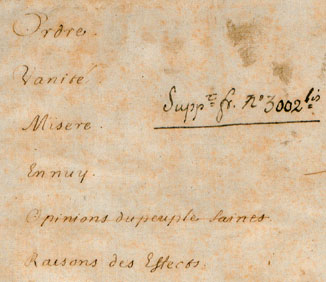 Ordre.
Vanité.
Suppt. fr. No 3002 bis
Misere.
Ennuy.
Opinions du peuple saines
Raisons des Effects